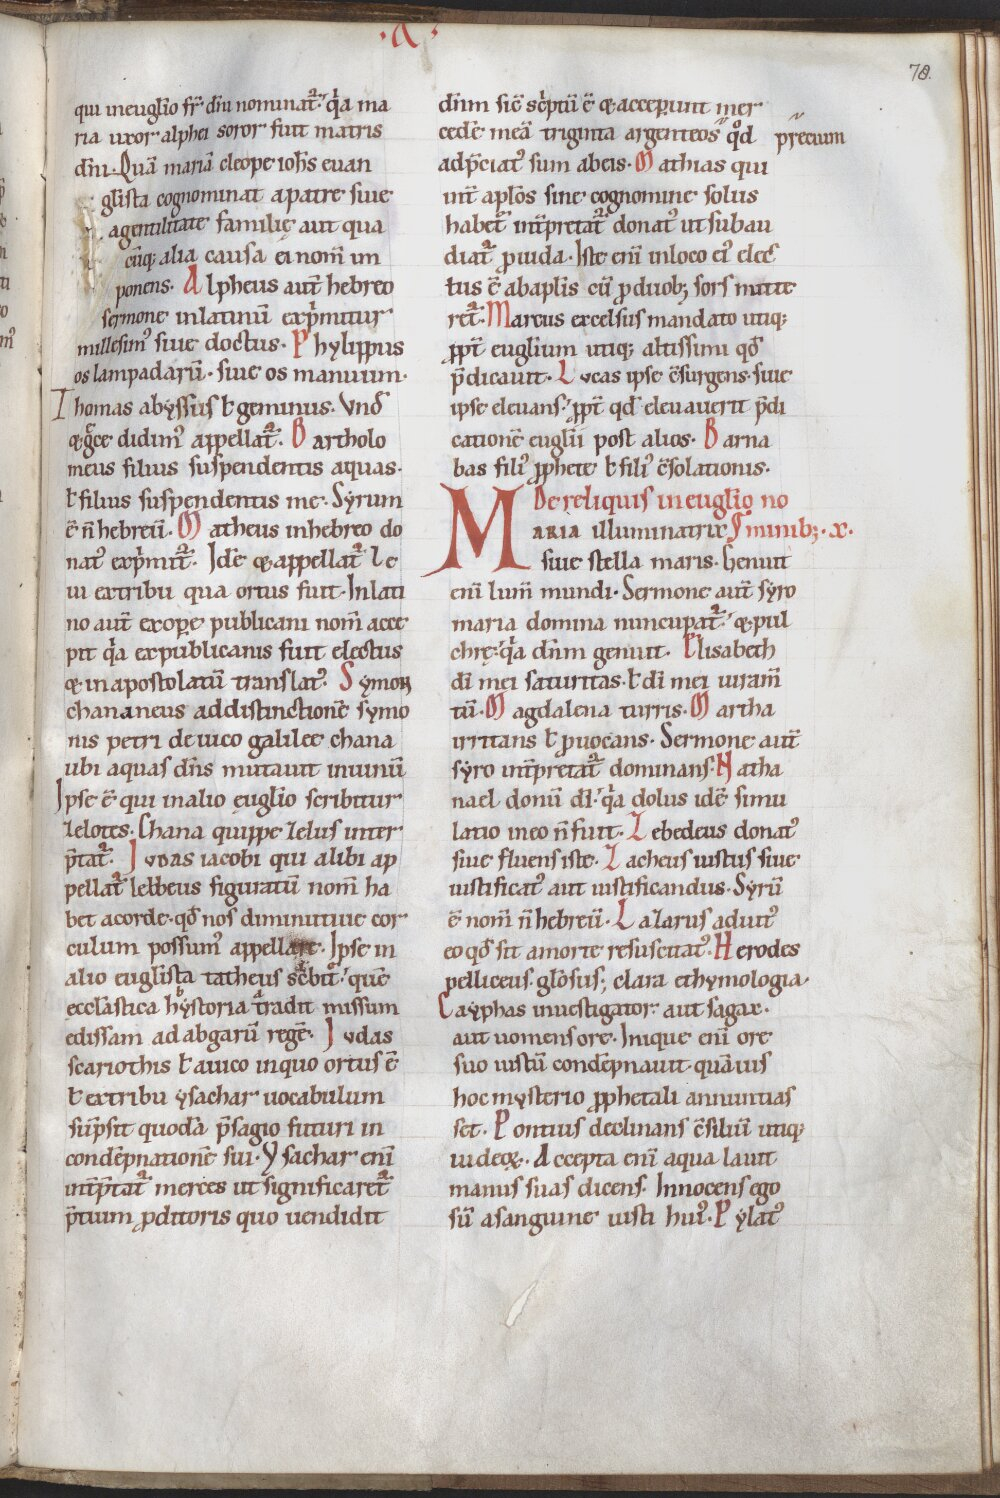 ·A·
78.
qui in euḡlio fr̄ dn̄i nominat᷑. q̇a ma
ria uxor alphei soror fuit matris
dn̄i. Quā mariā cleope ioh̄s euan
glista cognominat a patre siue
a gentilitate familię aut qua
cūq; alia causa ei nom̄ im
ponens. Alpheus aut̄ hebreo
sermone in latinū exp̍mitur
millesim᷒ siue doctus. Phylippus
os lampadarū. siue os manuum.
Thomas abyssus ł geminus. Vnđ
& g̍ce didim᷒ appellat᷑. Bartholo
meus filius suspendentis aquas.
ł filius suspendentis me. Syrum
ē n̄ hebreū. Matheus in hebreo do
nat᷒ exp̍mit᷑. Idē & appellat᷑ le
ui ex tribu qua ortus fuit. In lati
no aut̄ ex ope᷒ publicani nom̄ acce
pit q̍a ex publicanis fuit electus
& in apostolatū translat᷒. Symon
chananeus ad distinctionē symo
nis petri de uico galileę chana
ubi aquas dn̄s mutauit in uinū
Ipse ē qui in alio euḡlio scribitur
zelotes. Chana quippe zelus inter
p̄tat᷑. Iudas iacobi qui alibi ap
pellat᷑ lebbeus figuratū nom̄ ha
bet a corde. qđ nos diminutiuę cor
culum possum᷒ appellare. Ipse in
alio euglista tatheus sc̍bit᷑. quē
ecclastica hystoria t̍adit missum
edissam ad abgarū regē. Iudas
scariothis ł a uico in quo ortus ē
ł ex tribu ysachar uocabulum
sūpsit quodā p̄sagio futuri in
condēpnationē sui. Ysachar eni̅
int̄p̄tat᷑ merces ut significaret᷑
p̄tium ꝓditoris quo uendidit
dn̄m sic̄ sc̍ptū ē & acceperunt mer
cedē meā triginta argenteos qͦd
p̄recium
adp̄ciat᷒ sum ab eis. Mathias qui
int̄ aplōs sine cognomine solus
habet᷑ int̄pretat᷑ donat᷒ ut subau
diat᷑ ꝓ iuda. Iste eni̅ in loco ei᷒ elec
tus ē ab apłis cū ꝓ duob; sors mitte
ret᷑. Marcus excelsus mandato utiq;
ꝓpt̄ euglium utiq; altissimi qđ
p̄dicauit. Lucas ipse c̄surgens. siue
ipse eleuans. ꝓpt̄ qđ eleuauerit p̄di
cationē euglii post alios. Barna
bas fili᷒ ꝓphete ł fili᷒ c̄solationis.
De reliquis in euglio no
minib;. x.
MARIA illuminatrix
siue stella maris. Genuit
eni̅ lum̄ mundi. Sermone aut̄ syro
maria domina nuncupat᷑. & pul
chrę. q̍a dn̄m genuit. Elisabeth
di̅ mei saturitas. ł di̅ mei iuram̄
tū. Magdalena turris. Martha
irritans ł ꝓuocans. Sermone aut̄
syro int̄pretat᷑ dominans. Natha
nael donū di̅. q̍a dolus idē simu
latio in eo n̄ fuit. Zebedeus donat᷒
siue fluens iste. Zacheus iustus siue
iustificat᷒ aut iustificandus. Syrū
ē nom̄ n̄ hebreū. Lazarus adiut᷒
eo qđ sit a morte resuscitat᷒. Herodes
pelliceus. glōsus; clara ethymologia.
Cayphas inuestigator aut sagax.
aut uomens ore. Inique eni̅ ore
suo iustū condēpnauit. quāuis
hoc mysterio ꝓphetali annuntias
set. Pontius declinans c̄siliū utiq;
iudeoꝝ. Accepta eni̅ aqua lauit
manus suas dicens. Innocens ego
sū a sanguine iusti hui᷒. Pylat᷒